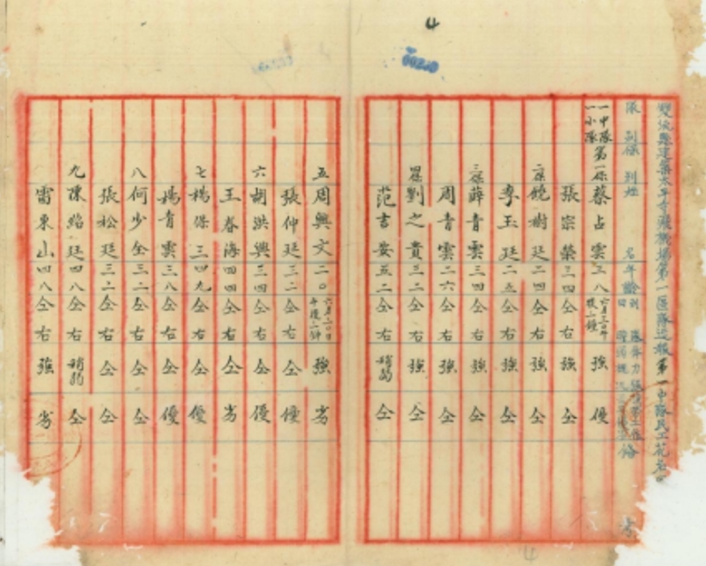 4
雙流縣建築太平寺飛機場第一區隊造報第一中隊民工花名
隊別保別姓名年齡
一中隊一小隊第一保蔡占雲三八
強優
張宗榮三四仝右強仝
二保饒樹廷二四仝右強仝
李玉廷二五仝右仝仝
三保薛青雲三四仝右強仝
周青雲二六仝右強仝
四保劉之貴三二仝右強仝
范吉安五二仝右稍弱仝
五周興文二〇六月二〇日午後二鐘強劣
張仲廷三二仝右仝優
六胡洪興三四仝右仝優
王春海四四仝右仝劣
七楊保三四九仝右仝優
楊青雲三八仝右仝優
八何少全三二仝右仝仝
張松廷三二仝右仝仝
九陳紹廷四八仝右稍弱仝
雷東山四八仝右強劣